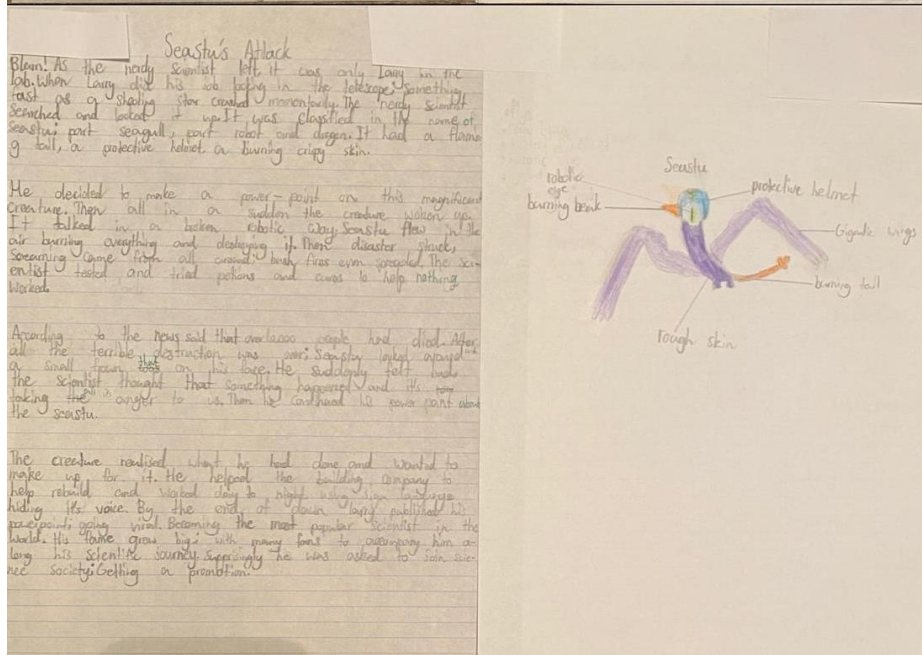 Seastu's Attack
Blam! As the nerdy scientist left, it was only Larry in the
lab. When Larry did his job looking in the telescope, something
fast as a shooting star crashed momentarily. The nerdy scientist
searched and looked it up. It was classfied in the name of,
Seastu: part seagull, part robot and dragon. It had a flamin
g tail, a protective helmet a burning crispy skin.
He decided to make a power-point on this magnificent
creature. Then all in a sudden the creature woken up.
It talked in a broken robotic way. Seastu flew in the
air burning everything and destroying it. Then disaster struck,
Screaming came from all around, bush fires even spreaded. The sci-
entist tested and tried potions and cures to help nothing
worked.
According to the news said that over people had died. After
all the terrible destruction was over; Seastu looked around
a small town that on his face. He suddenly felt bad.
the scientist thought that something happened and it's
taking the all in anger to us. Then he continued his power point about
the seastu.
The creature realised what he had done and wanted to
make up for it. He helped the building company to
help rebuild and worked day to night using sign language
hiding it's voice. By the end, at dawn larry published his
powerpoint; going viral. Becoming the most popular scientist in the
world. His fame grew big; with many fans to accompany him a-
long his scientific journey. Suprisingly he was asked to join scie-
nce society; Getting a promotion.
Seastu
robotic
eye
burning beak
protective helmet
Gigantic wings
burning tail
rough skin